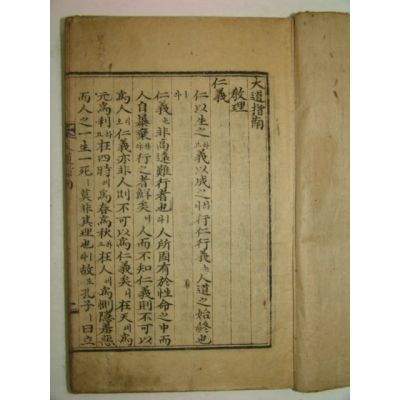 大道指南
敎理
仁義
仁以生之고義以成之니行仁行義는人道之始終也
라
仁義는非高遠難行者也라人所固有於性命之中而
人自暴棄行之者鮮矣라人而不知仁義則不可以
爲人이오仁義亦非人則不可以爲仁義矣라在天에爲
元爲利고在四時에爲春爲秋고在人에爲惻隱羞惡
而人之一生一死ㅣ莫非其理也라故로孔子ㅣ曰立
大道指南